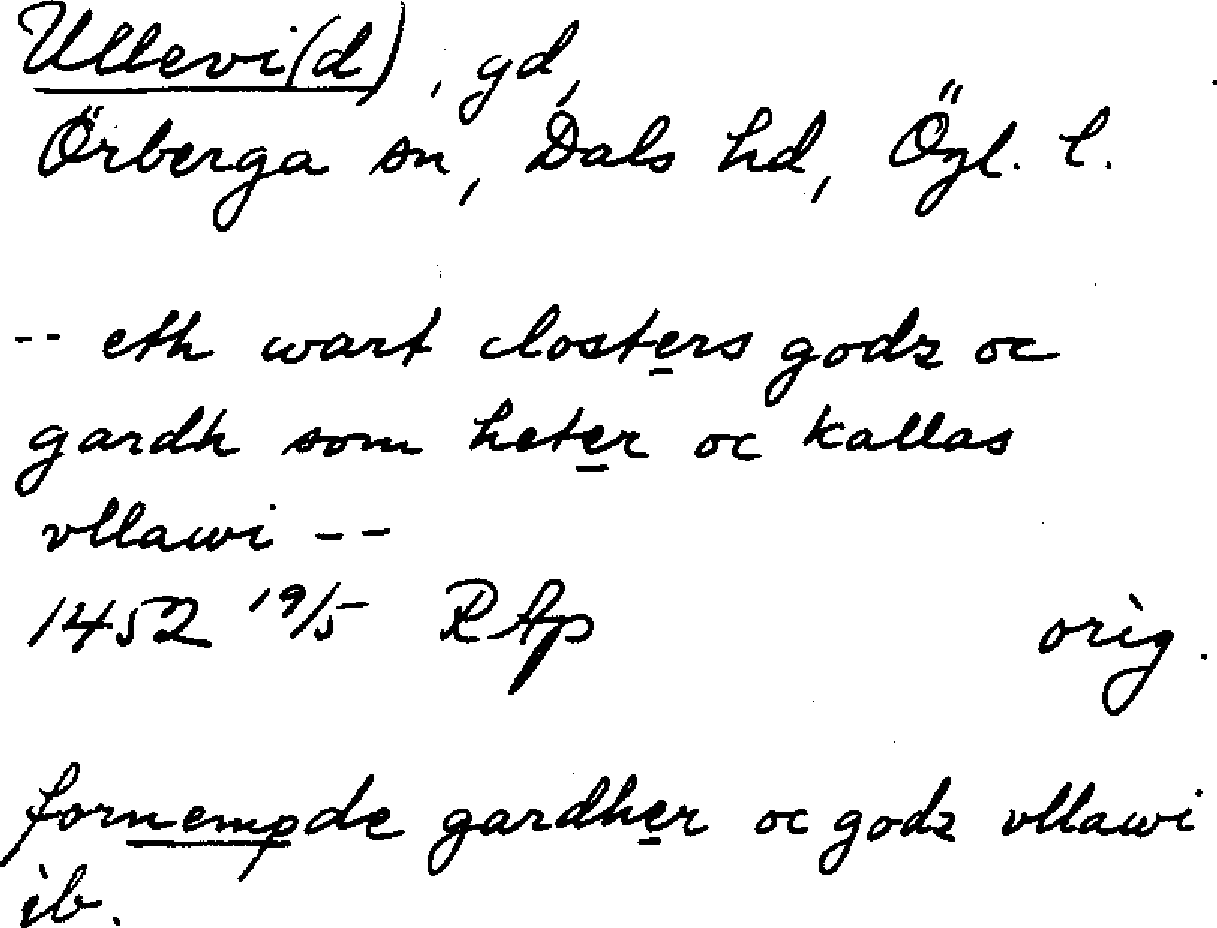 Ullevi(d), gd,
Örberga sn, Dals hd, Ögl. l.
-- eth wart closters godz oc
gardh som heter oc kallas
vllawi --
1452 19/5 RAp orig.
fornempde gardher oc godz vllawi
ib.